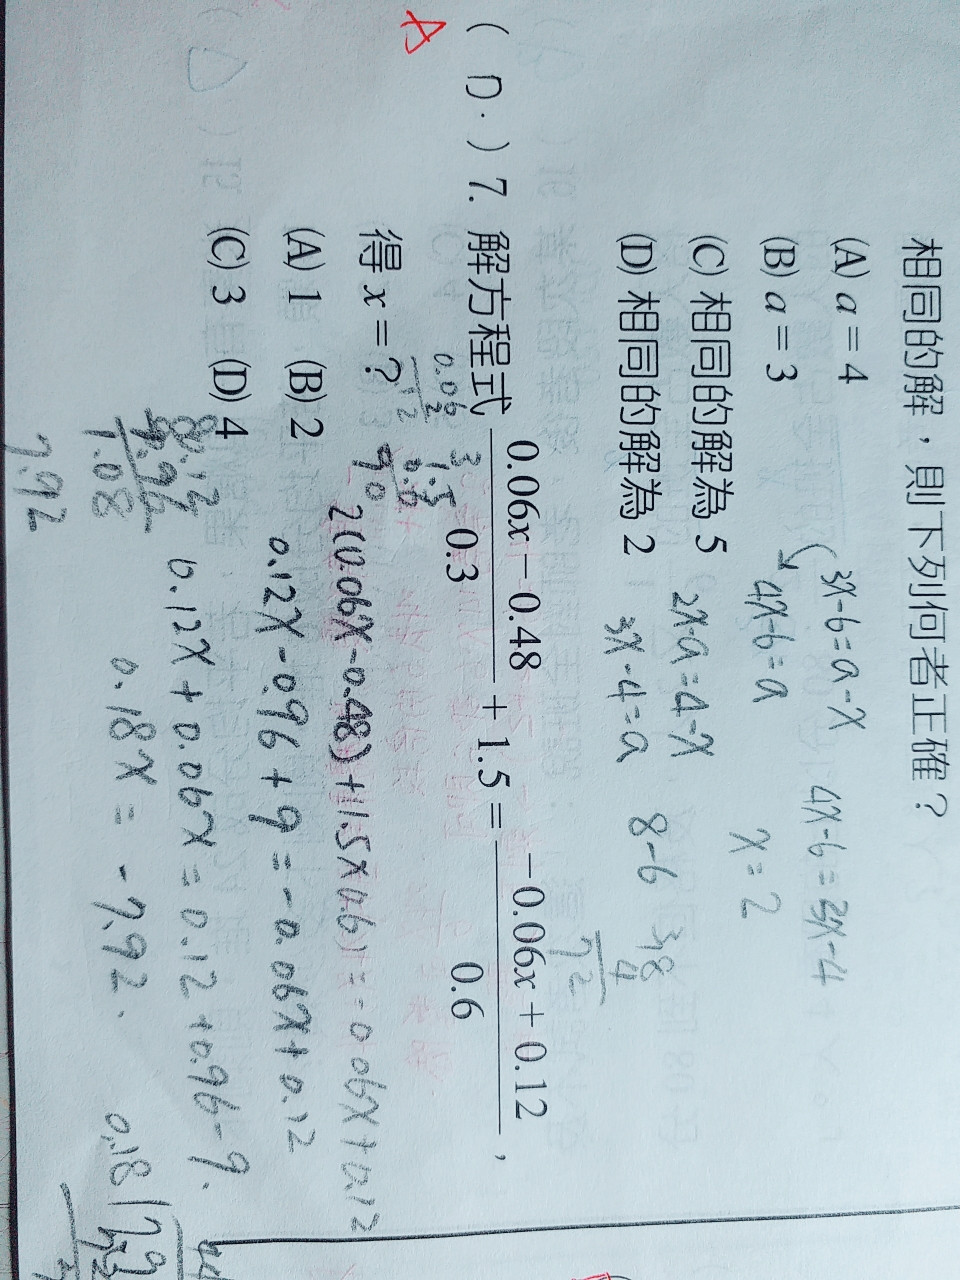 相同的解，則下列何者正確？
(A) a = 4
(B) a = 3
(C) 相同的解為 5
(D) 相同的解為 2
3x-6=a-x
4x-6=a
4x-6=3x-4
x=2
2x-a=4-x
3x-4=a
8-6
( D. ) 7. 解方程式 \frac{0.06x-0.48}{0.3} + 1.5 = \frac{-0.06x+0.12}{0.6}，
A
得 x = ?
(A) 1 (B) 2
(C) 3 (D) 4
2(0.06x-0.48)+1.5×0.6)=-0.06x+0.12
0.12x-0.96+9=-0.06x+0.12
0.12x+0.06x=0.12+0.96-9.
0.18x=-7.92.
1.08
7.92